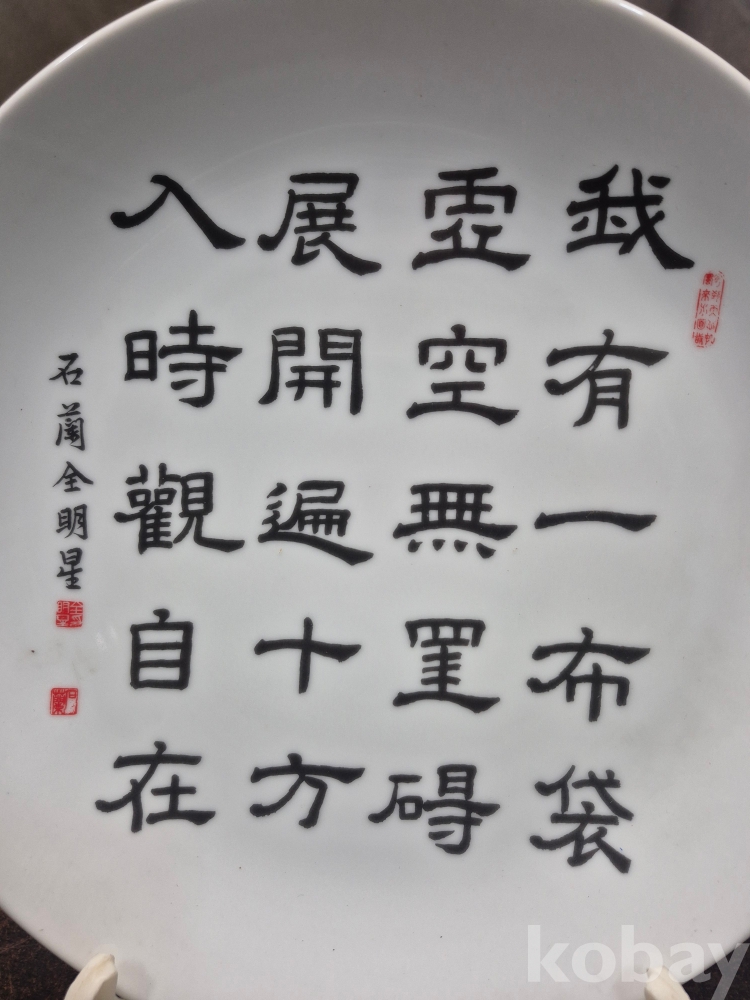 我有一布袋
虛空無罣碍
展開遍十方
入時觀自在
石蘭全明星
kobay